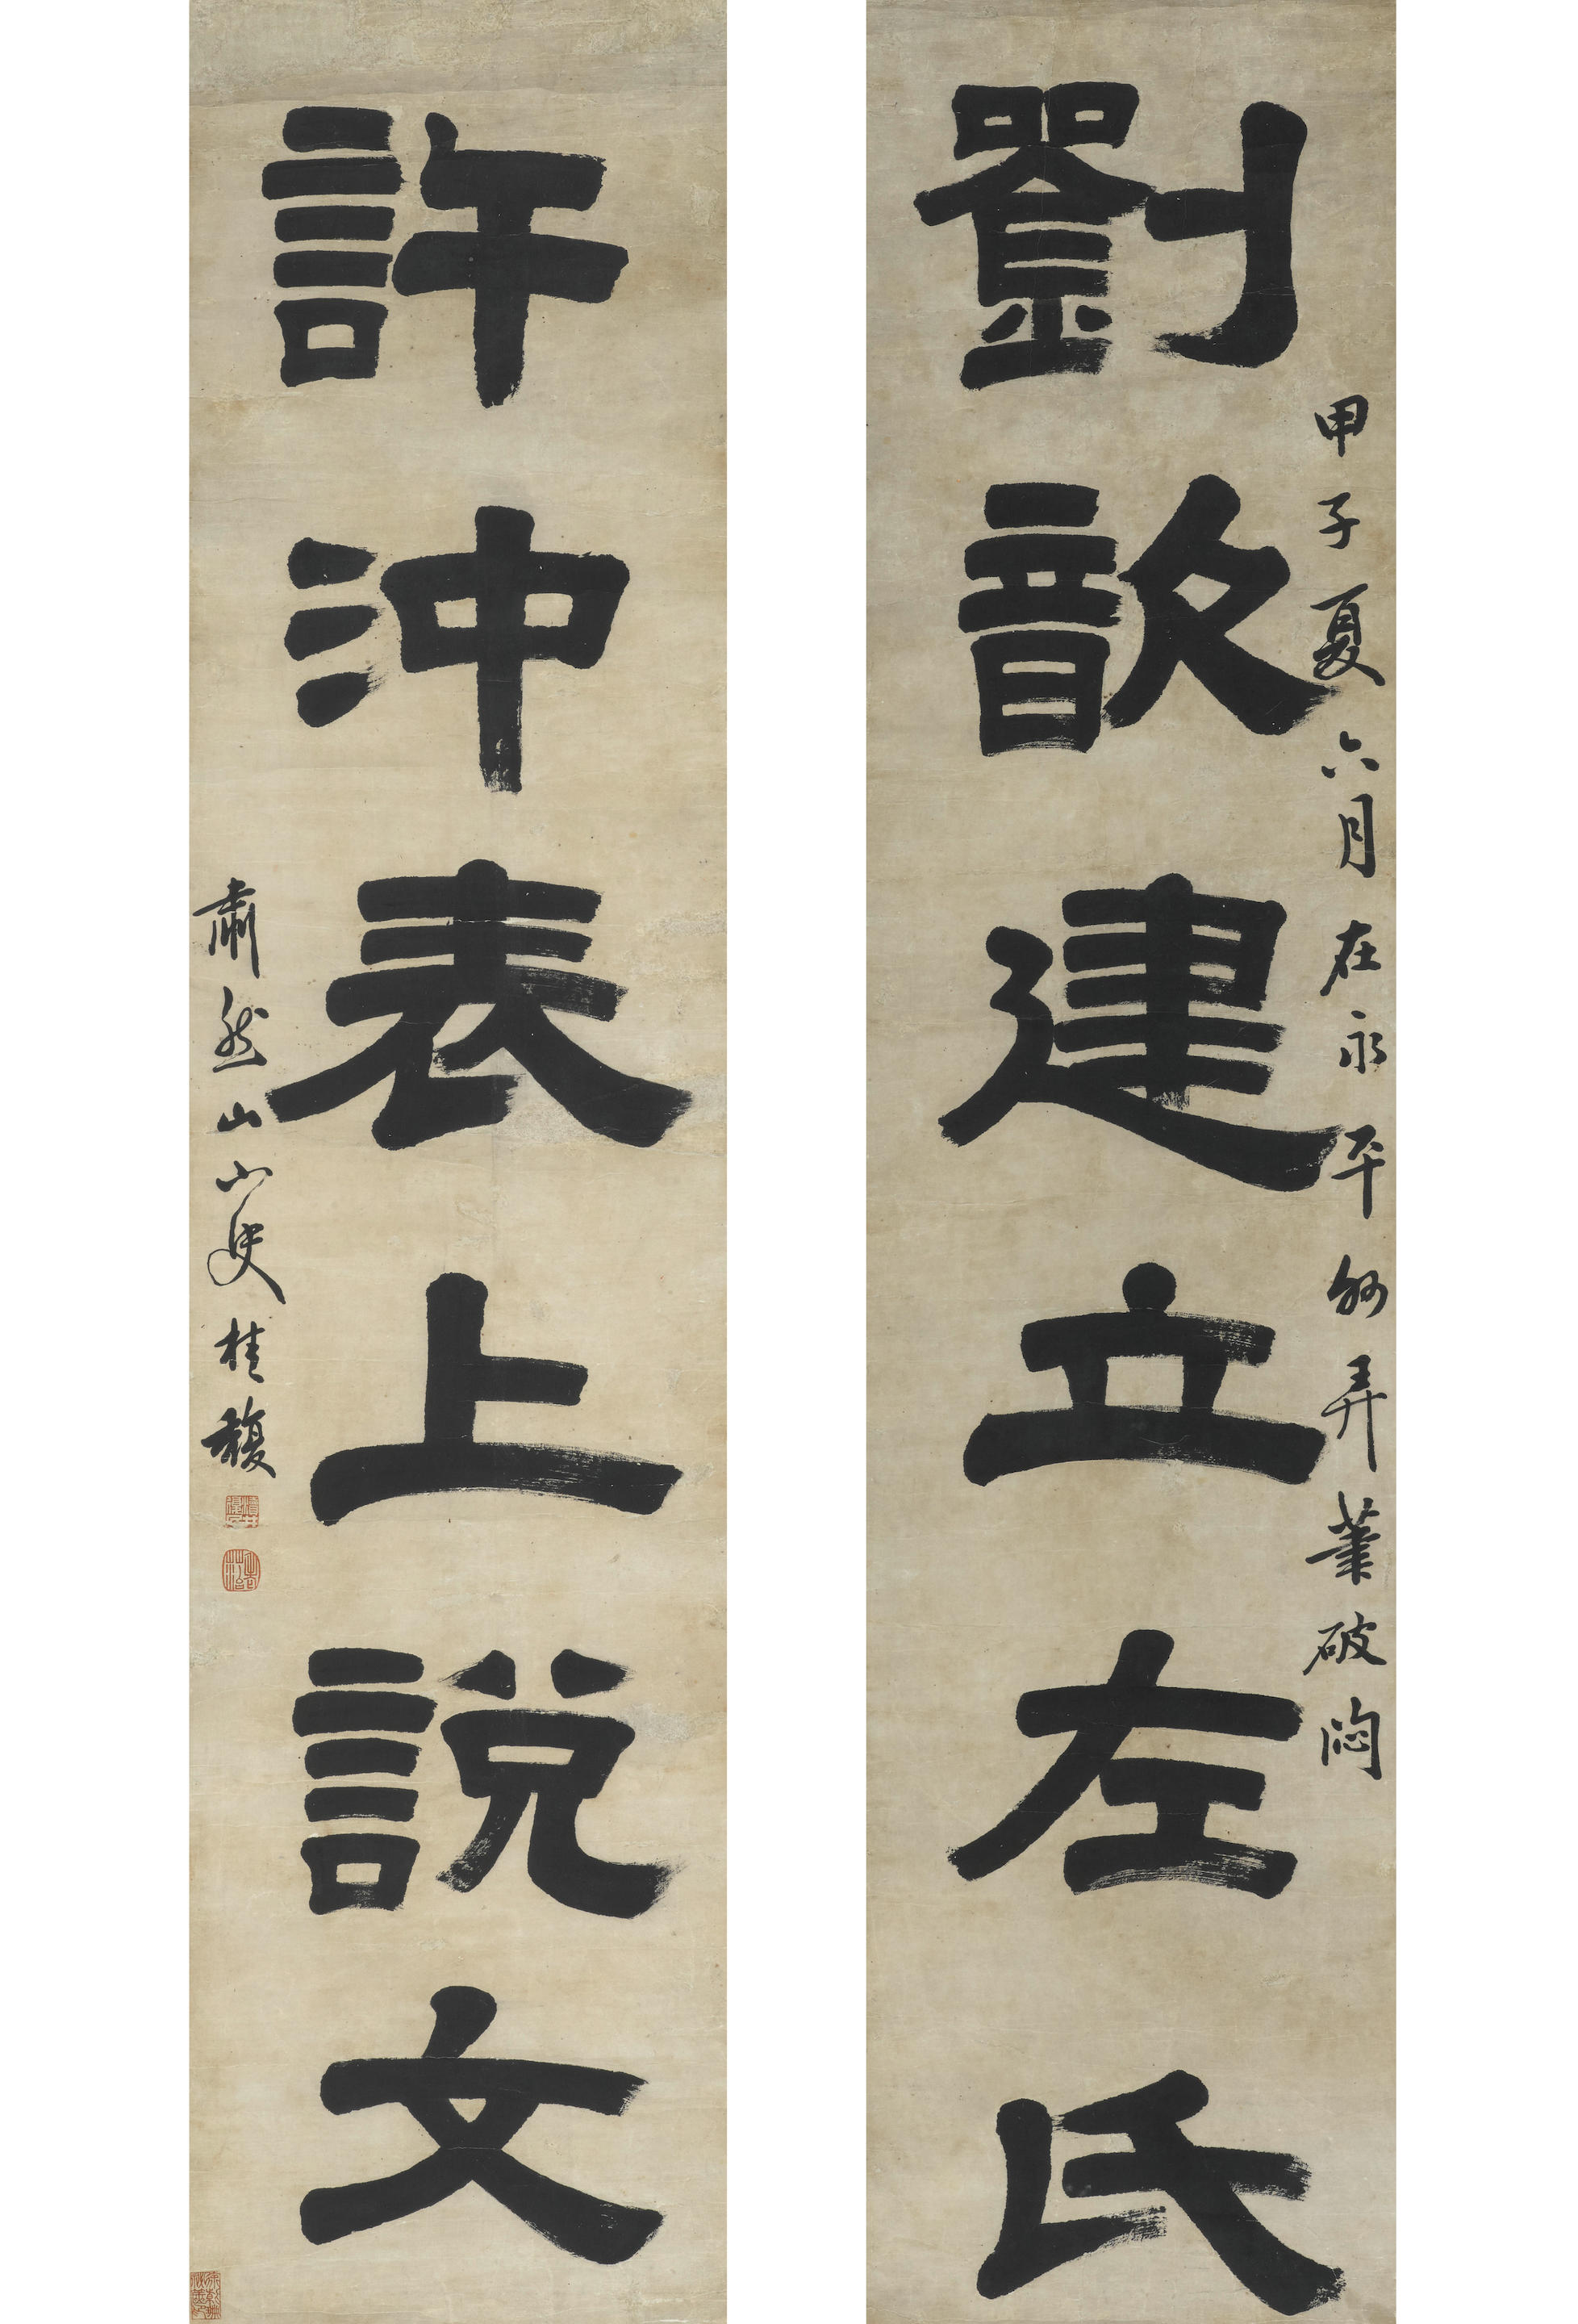 劉歆建立左氏
甲子夏六月在永平縣弄筆破悶
許沖表上說文
肅然山外史桂馥
瀆井復民